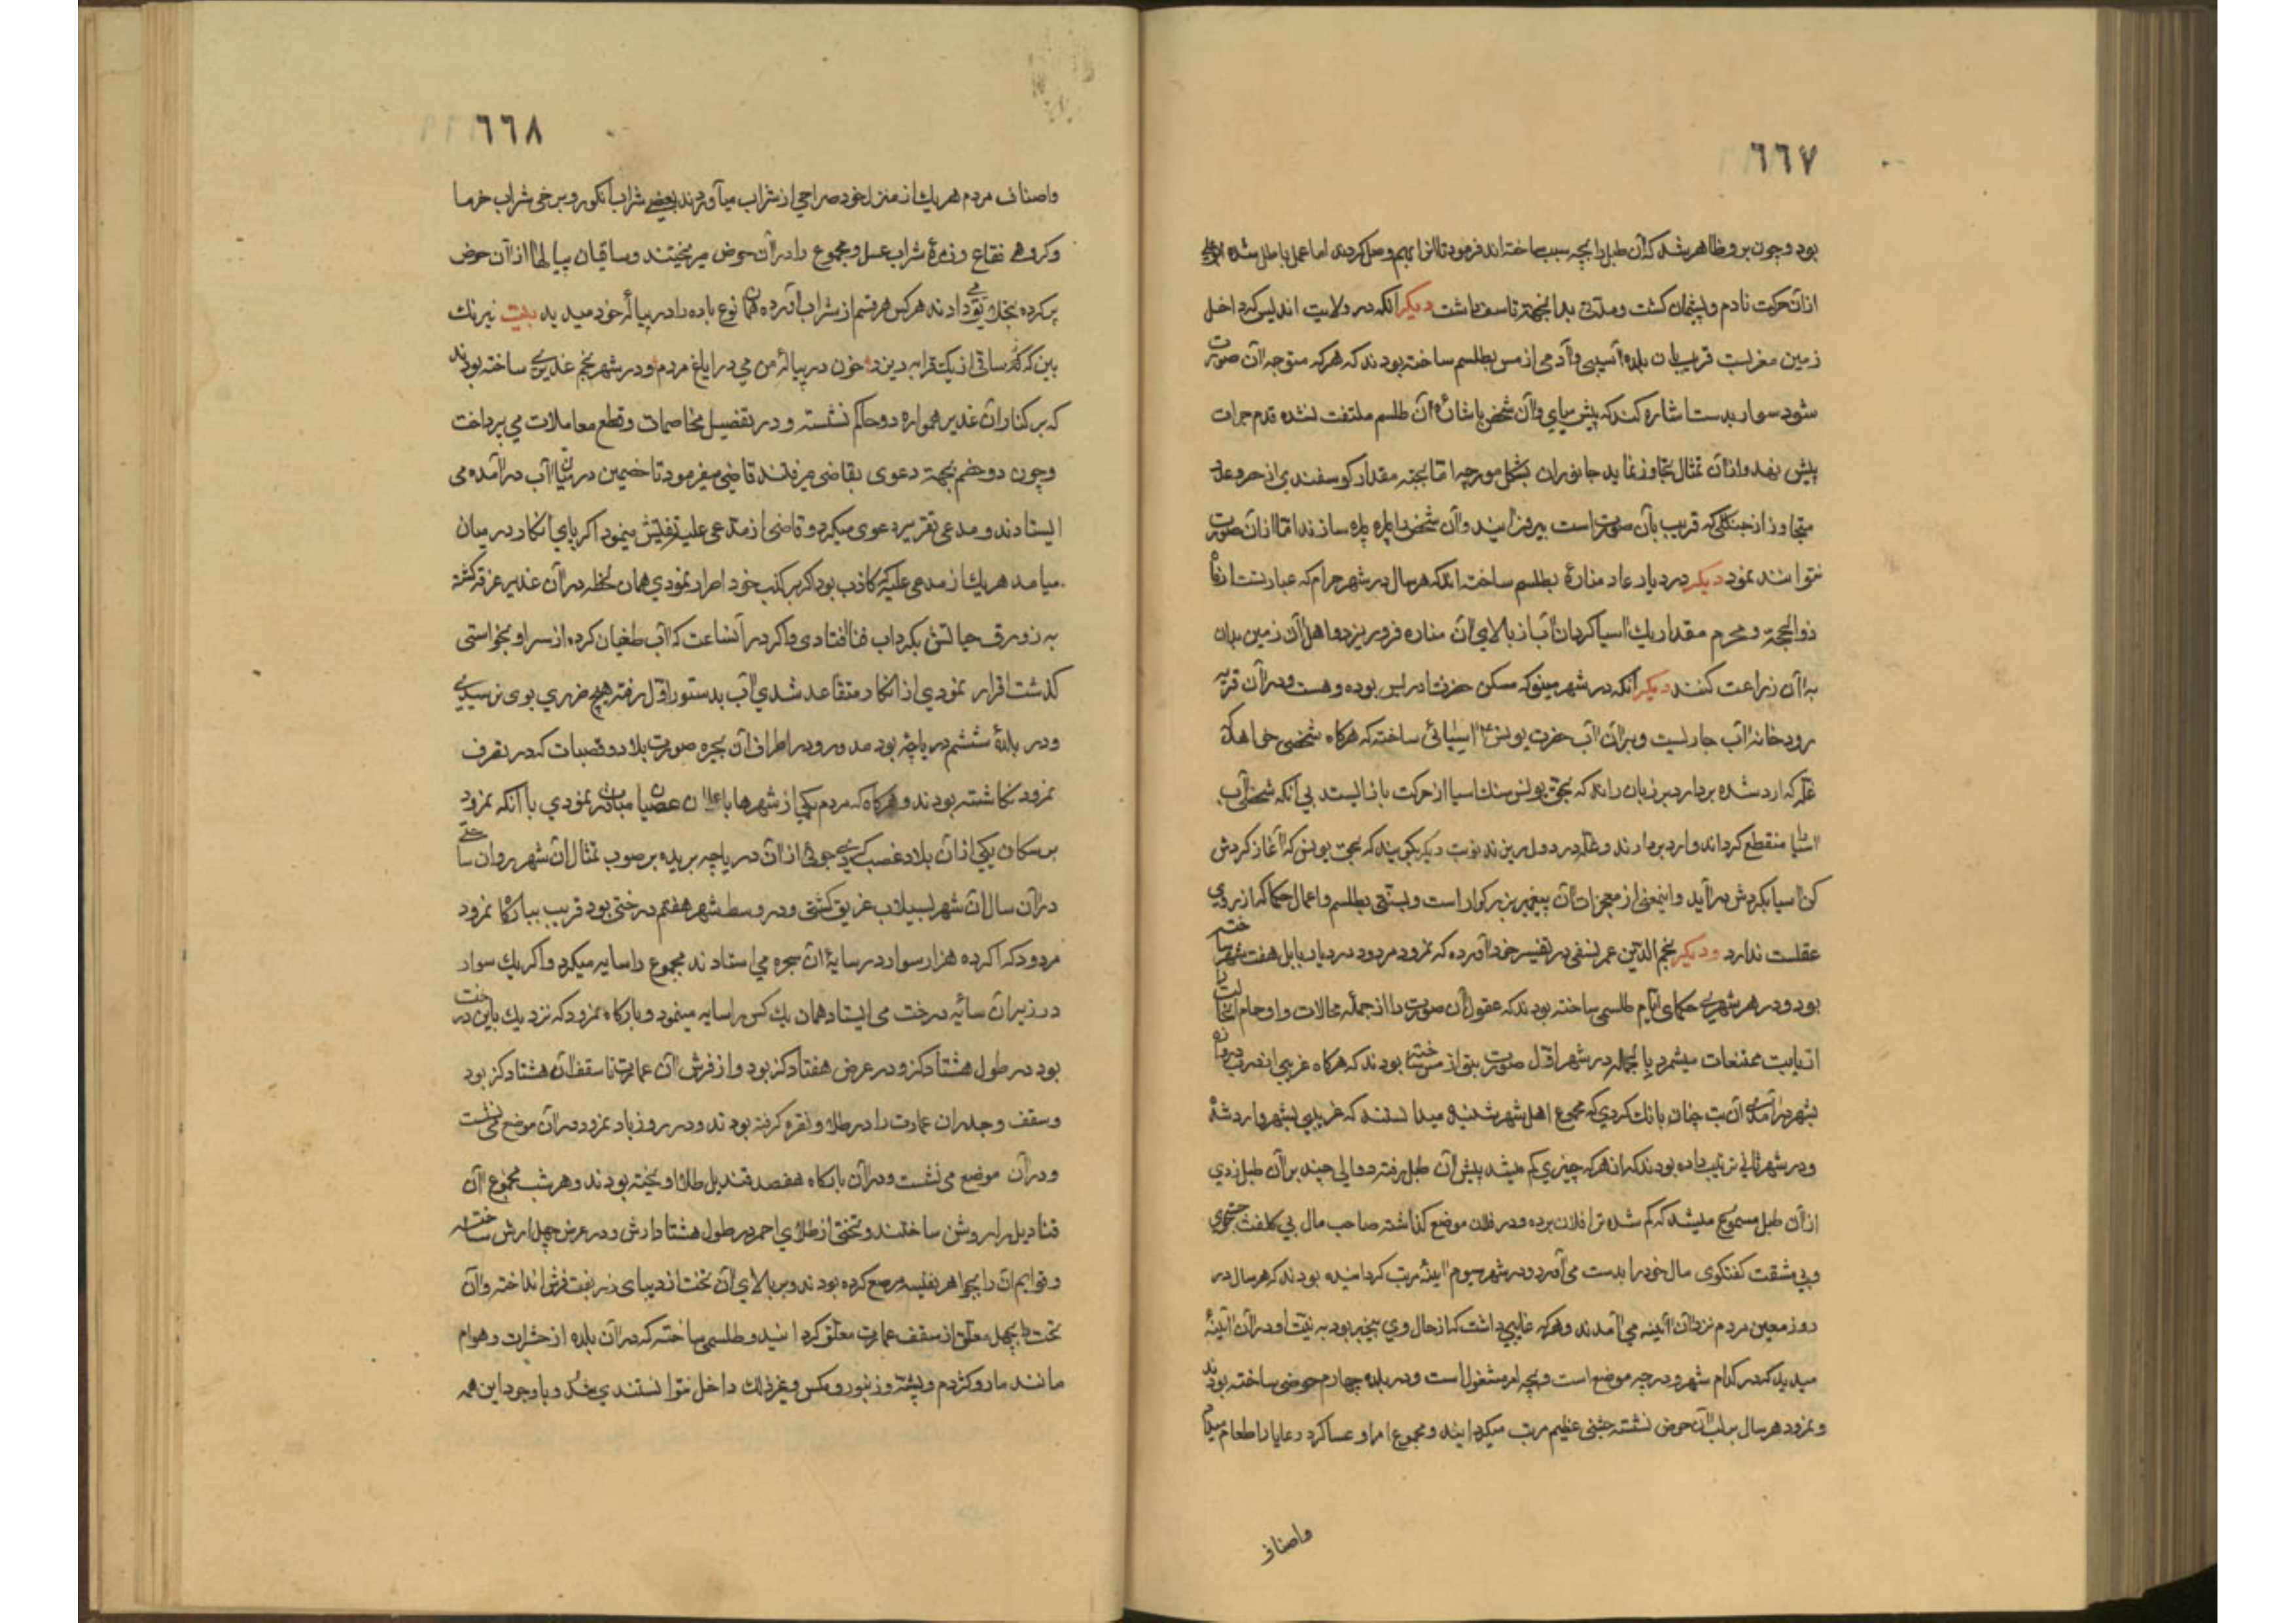 ٦٦٧
بود و چون بر و ظاهر شد که آن طبل را بجه سبب ساخته اند فرمود تا انرا بهم وصل کردند اما عمل باطل شده بود
ازان حرکت نادم و پشیمان کشت و مدتی بدانجهة تاسف داشت دیکر انکه در ولایت اندلس که داخل
زمین مغربست قریب بان بلده اسپی و آدمی از مس بطلسم ساخته بودند که هرکه متوجه آن صورت
شود سوار بدست اشاره کند که پیش میای و آن شخص باشاره آن طلسم ملتفت نشده قدم جرات
پیش نهد و ازان تمثال تجاوز نماید جانوران بشکل مورچه اما بجثه مقدار کوسفندی از حد و عد
متجاوز از جنکلی که قریب بآن صورت است بیرون ایند و آن شخص را پاره پاره سازند اما ازان صورت
نتوانند نمود دیکر در دیار عاد مناره بطلسم ساخته اند که هر سال در شهر حرام که عبارتست از
ذوالحجة و محرم مقدار یک اسیا کردان آب از بالای آن مناره فرو ریزد و اهل آن زمین بدان
به آن زراعت کنند دیکر انکه در شهر مینو که مسکن حضرت ادریس بوده و هست و در آن قریه
رودخانه آب جاریست و بر آن آب حضرت یونس ع اسیائی ساخته که هرکاه شخصی خواهد که
غله که ارد شده بردارد بر زبان راند که بحق یونس سنک اسیا از حرکت باز ایستد بی آنکه شخصی آب
اسیا منقطع کرداند و ارد بردارند و غله در دول ریزند نوبت دیکر بکویند که بحق یونس که آغاز کردش
کن اسیا بکردش در آید و اینمعنی از معجزات آن پیغمبر بزرکوار است و نسبتی بطلسم و اعمال حکما که از روی
عقلست ندارد و دیکر نجم الدین عمر نسفی در تفسیر خود آورده که نمرود مردود در دیار بابل هفت شهر ساخته
بود و در هر شهری حکمای ایام طلسمی ساخته بودند که عقول آن صورت را از جمله محالات و اوهام
ممتنعات میشمرد بالجمله در شهر اول صورت بتی از مس ساخته بودند که هرکاه غریبی از در دروازه
بشهر در آمدی آن بت چنان بانک کردی که مجموع اهل شهر شنیدی میدانستند که غریبی بشهر وارد شده
و در شهر ثانی ترتیب داده بودند که از هرکه چیزی کم میشد پیش آن طبل رفته دوالی چند بر آن طبل زدی
از آن طبل مسموع میشد که کم شده ترا فلان برده و در فلان موضع کذاشته صاحب مال بی کلفت جستجوی
و بی مشقت کفتکوی مال خود را بدست می آورد و در شهر سیوم اینه مرتب کردانیده بودند که هر سال در
روز معین مردم نزد آن آئینه می آمدند و هرکه غایبی داشت که از حال وی بیخبر بود به نیت او در آن آئینه
میدید که در کدام شهر و در چه موضع است و بچه امر مشغول است و در بلده چهارم حوضی ساخته بودند
و نمرود هر سال بر لب آن حوض نشسته جشنی عظیم مرتب میکردانید و مجموع امرا و عساکر و رعایا را طعام میداد
واصناف
٦٦٨
واصناف مردم هریک از منزل خود صراحی از شراب میآوردند بعضی شراب انکور و برخی شراب خرما
و کروهی فقاع و زمرهٔ شراب عسل و مجموع را در آن حوض میریختند و ساقیان پیالها از آن حوض
پر کرده بخلایق می دادند هرکس هر قسم از شراب آورده همان نوع باده را در پیاله خود میدید بیت نیرنک
بین که ساقی از یک قرابه ریزد خون در پیاله من می در ایاغ مردم و در شهر پنجم غدیری ساخته بودند
که بر کنار آن غدیر همواره دو حاکم نشسته و در تفصیل مخاصمات و قطع معاملات می پرداخت
و چون دو خصم بجهة دعوی بقاضی میرفتند قاضی میفرمود تا خصمین در میان آب در آمده می
ایستادند و مدعی تقریر دعوی میکرد و قاضی از مدعی علیه تفتیش مینمود اکر پای انکار در میان
میامد هریک از مدعی علیه که کاذب بود اکر بر کذب خود اصرار نمودی همان لحظه در آن غدیر غرقه کشته
به زورق حیاتش بکرداب فنا افتادی و اکر در آنساعت که آب طغیان کرده از سر او بخواستی
کذشت اقرار نمودی از انکار متقاعد شدی آب بدستور اول رفته هیچ ضرری بوی نرسیدی
و در بلدهٔ ششم دریاچه بود مدور و در اطراف آن بحیره صورت بلاد و قصبات که در تصرف
نمرود نکاشته بودند و هرکاه که مردم یکی از شهرها باعلان عصیان مبادرت نمودی یا آنکه نمرود
بر سکان یکی از ان بلاد غضب کردی جوئی از آن دریاچه بریده بر صوب تمثال ان شهر روان ساختی
در آن سال آن شهر بسیلاب غریق کشتی و در وسط شهر هفتم درختی بود قریب ببارکاه نمرود
مردود که اکر ده هزار سوار در سایهٔ آن شجره می استادند مجموع را سایه میکرد و اکر یک سوار
در زیر آن سایه درخت می ایستاد همان یک کس را سایه مینمود و بارکاه نمرود که نزدیک باین درخت
بود در طول هشتاد کز و در عرض هفتاد کز بود و از فرش آن عمارت تا سقف آن هشتاد کز بود
و سقف و جدران عمارت را در طلا و نقره کرفته بودند و در روز باد نمرود در آن موضع می نشست
و در آن موضع می نشست و در آن بارکاه هفصد قندیل طلا آویخته بودند و هر شب مجموع آن
قنادیل را روشن ساختند و تختی از طلای احمر در طول هشتاد ارش و در عرض چهل ارش ساخته
و قوایم آن را بجواهر نفیسه مرصع کرده بودند و بر بالای آن تخت از دیبای زر بفت فرش انداخته و آن
تخت را بچهل معلق از سقف عمارت معلق کردانید و طلسمی ساخته که در آن بلده از حشرات و هوام
مانند مار و کژدم و پشه و زنبور و مکس و غیر ذلک داخل نتوانستندی شد و با وجود این همه